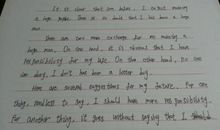 It is clear that are below, I to but making
a huge mistake. There is no doubt that I has been a huge
man.
There are two man exchange for me making a
huge man. On one hand, it is obvious that I have
responsibility for my use. On the other hand, no one
can deny, I don't has been a better day.
Here are several suggestions for my future. For one
thing, needless to say, I should have more responsibility.
For another thing, it goes without saying that I should